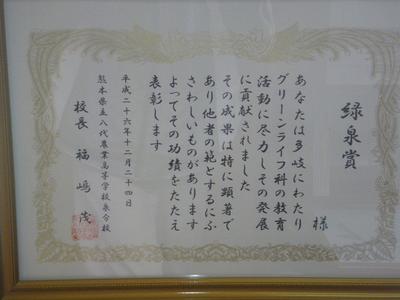 緑泉賞
様
あなたは多岐にわたり
グリーンライフ科の教育
活動に尽力しその発展
に貢献されました
その成果は特に顕著で
あり他者の範とするにふ
さわしいものがあります
よってその功績をたたえ
表彰します
平成二十六年十二月二十四日
熊本県立八代農業高等学校泉分校
校長 福嶋 茂